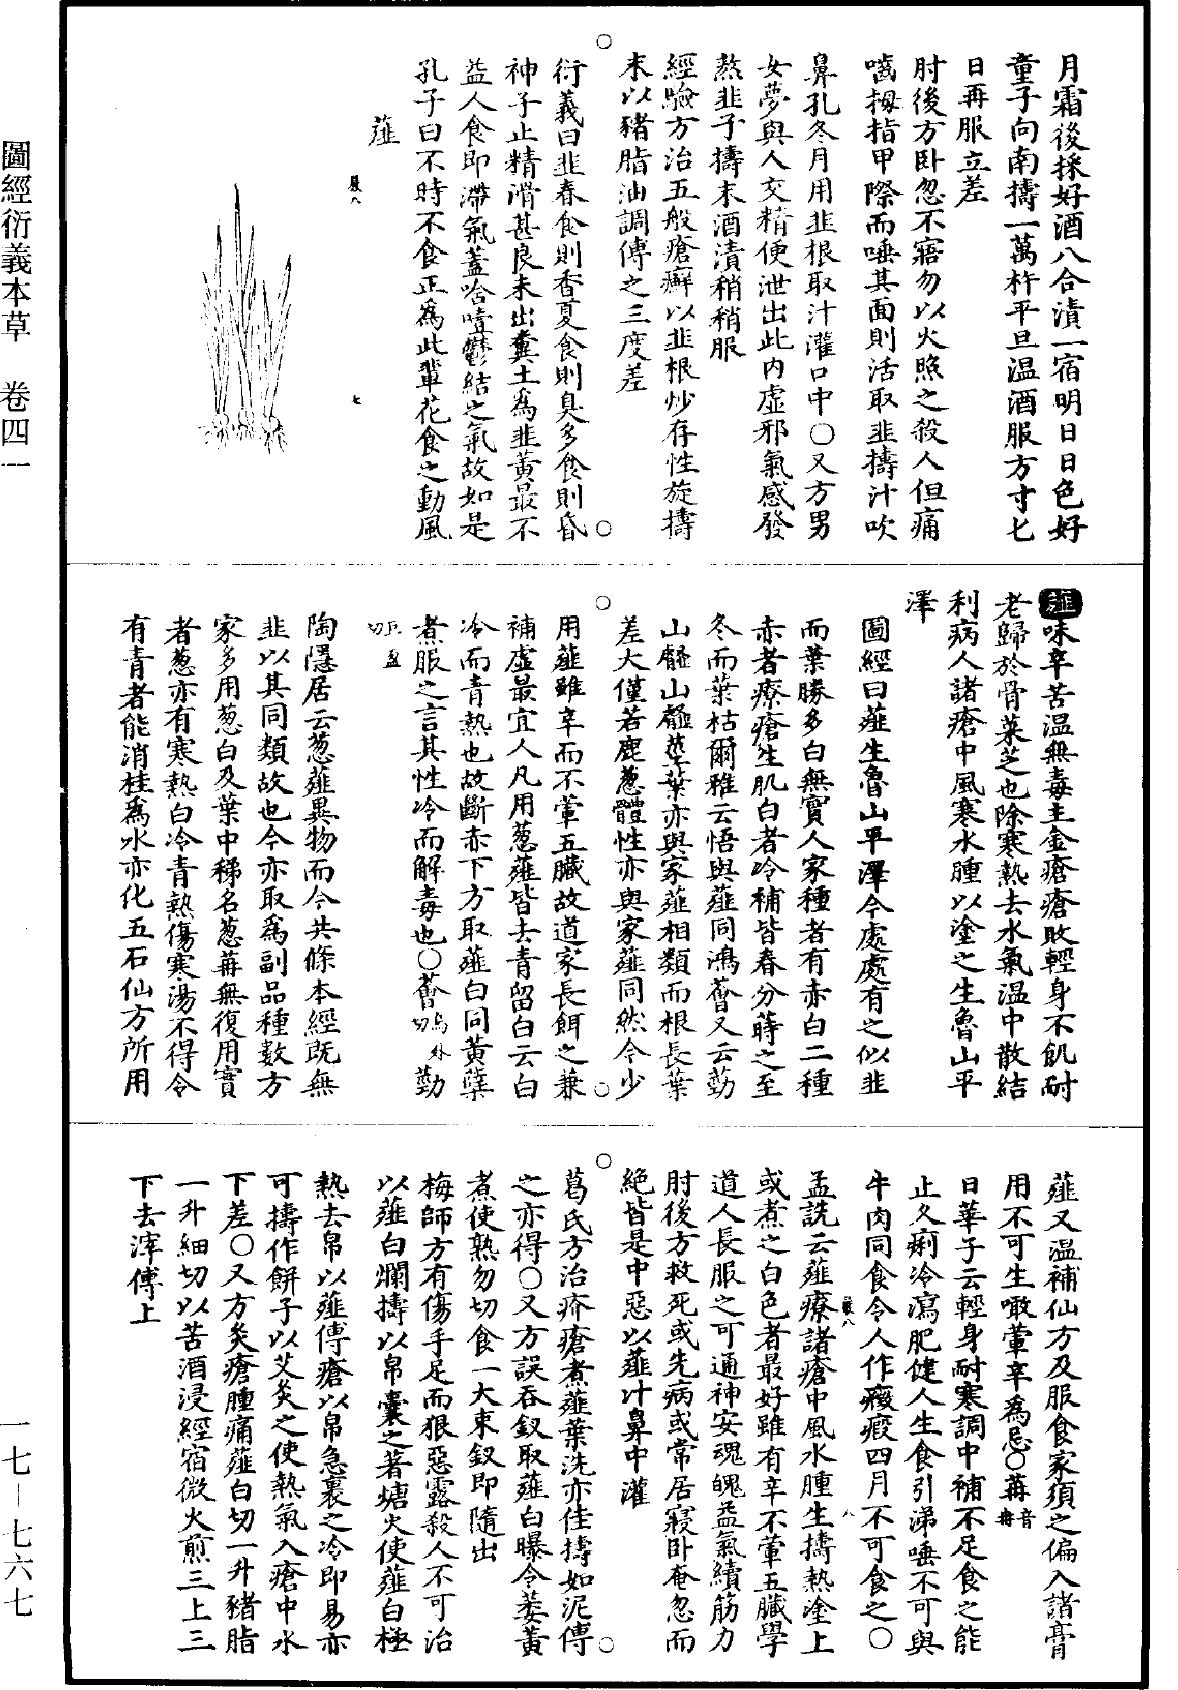 月霜後採好酒八合漬一宿明日日色好
童子向南擣一萬杵平旦温酒服方寸匕
日再服立差
肘後方卧忽不寤勿以火照之殺人但痛
嚙拇指甲際而唾其面則活取韭擣汁吹
鼻孔冬月用韭根取汁灌口中〇又方男
女夢與人交精便泄出此内虚邪氣感發
熬韭子擣末酒漬稍稍服
經驗方治五般瘡癬以韭根炒存性旋擣
末以豬脂油調傅之三度差
衍義曰韭春食則香夏食則臭多食則昏
神子止精滑甚良未出糞土爲韭黄最不
益人食即滯氣蓋啥噎鬱結之氣故如是
孔子曰不時不食正爲此輩花食之動風
薤
嚴八
七
薤味辛苦温無毒主金瘡瘡敗輕身不飢耐
老歸於骨菜芝也除寒熱去水氣温中散結
利病人諸瘡中風寒水腫以塗之生魯山平
澤
圖經曰薤生魯山平澤今處處有之似韭
而葉勝多白無實人家種者有赤白二種
赤者療瘡生肌白者冷補皆春分蒔之至
冬而葉枯爾雅云悟與薤同鴻薈又云葝
山䪥山䪥莖葉亦與家薤相類而根長葉
差大僅若鹿葱體性亦與家薤同然今少
用薤雖辛而不葷五臟故道家長餌之兼
補虚最宜人凡用葱薤皆去青留白云白
冷而青熱也故斷赤下方取薤白同黄蘗
煮服之言其性冷而解毒也〇薈烏外切葝
巨盈切
陶隱居云葱薤異物而今共條本經既無
韭以其同類故也今亦取爲副品種數方
家多用葱白及葉中稊名葱苒無復用實
者葱亦有寒熱白冷青熱傷寒湯不得令
有青者能消桂爲水亦化五石仙方所用
薤又温補仙方及服食家須之偏入諸膏
用不可生噉葷辛爲忌〇苒音冉
日華子云輕身耐寒調中補不足食之能
止久痢冷瀉肥健人生食引涕唾不可與
牛肉同食令人作癥瘕四月不可食之〇
孟詵云薤療諸瘡中風水腫生擣熱塗上
或煮之白色者最好雖有辛不葷五臟學
道人長服之可通神安魂魄益氣續筋力
肘後方救死或先病或常居寢卧奄忽而
絶皆是中惡以薤汁鼻中灌
嚴八
八
葛氏方治疥瘡煮薤葉洗亦佳擣如泥傅
之亦得〇又方誤吞釵取薤白曝令萎黄
煮使熟勿切食一大束釵即隨出
梅師方有傷手足而狠惡露殺人不可治
以薤白爛擣以帛囊之著煻火使薤白極
熱去帛以薤傅瘡以帛急裹之冷即易亦
可擣作餅子以艾灸之使熱氣入瘡中水
下差〇又方灸瘡腫痛薤白切一升豬脂
一升細切以苦酒浸經宿微火煎三上三
下去滓傅上
圖經衍義本草 卷四一
一七—七六七